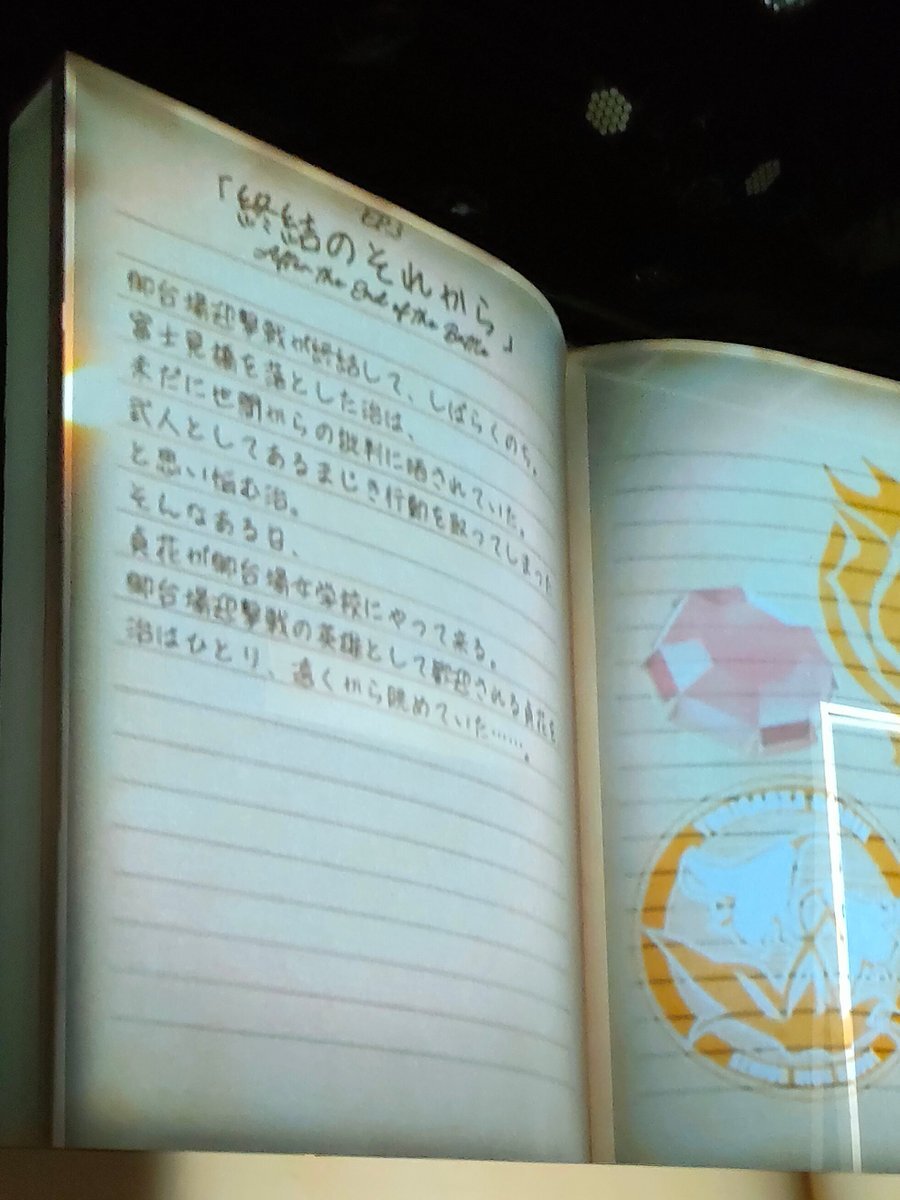 EP.3
「終結のそれから」
After the End of the Battle
御台場迎撃戦が終結して、しばらくのち。
富士見橋を落とした治は、
未だに世間からの批判に晒されていた。
武人としてあるまじき行動を取ってしまった
と思い悩む治。
そんなある日、
貞花が御台場女学校にやって来る。
御台場迎撃戦の英雄として歓迎される貞花を
治はひとり、遠くから眺めていた……。